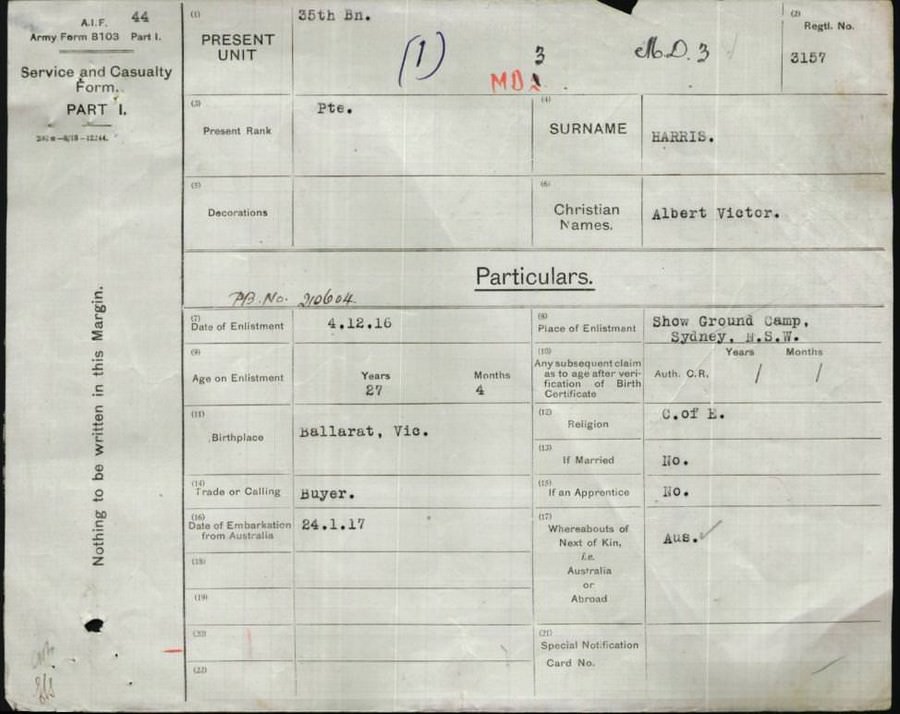 A.I.F. 44
Army Form B103 Part I.
Service and Casualty
Form.
PART I.
Nothing to be written in this Margin.
(1)
PRESENT
UNIT
35th Bn.
(1)
3
MD
M.D. 3
(2)
Regtl. No.
3157
(3)
Present Rank
Pte.
(4)
SURNAME
HARRIS.
(5)
Decorations
(6)
Christian
Names.
Albert Victor.
Particulars.
P.B. No. 210604
(7)
Date of Enlistment
4.12.16
(8)
Place of Enlistment
Show Ground Camp,
Sydney, N.S.W.
(9)
Age on Enlistment
Years Months
27 4
(10)
Any subsequent claim
as to age after veri-
fication of Birth
Certificate
Years Months
Auth. C.R. / /
(11)
Birthplace
Ballarat, Vic.
(12)
Religion
C.of E.
(13)
If Married
No.
(14)
Trade or Calling
Buyer.
(15)
If an Apprentice
No.
(16)
Date of Embarkation
from Australia
24.1.17
(17)
Whereabouts of
Next of Kin,
i.e.
Australia
or
Abroad
Aus.
(18)
(19)
(20)
(21)
Special Notification
Card No.
(22)